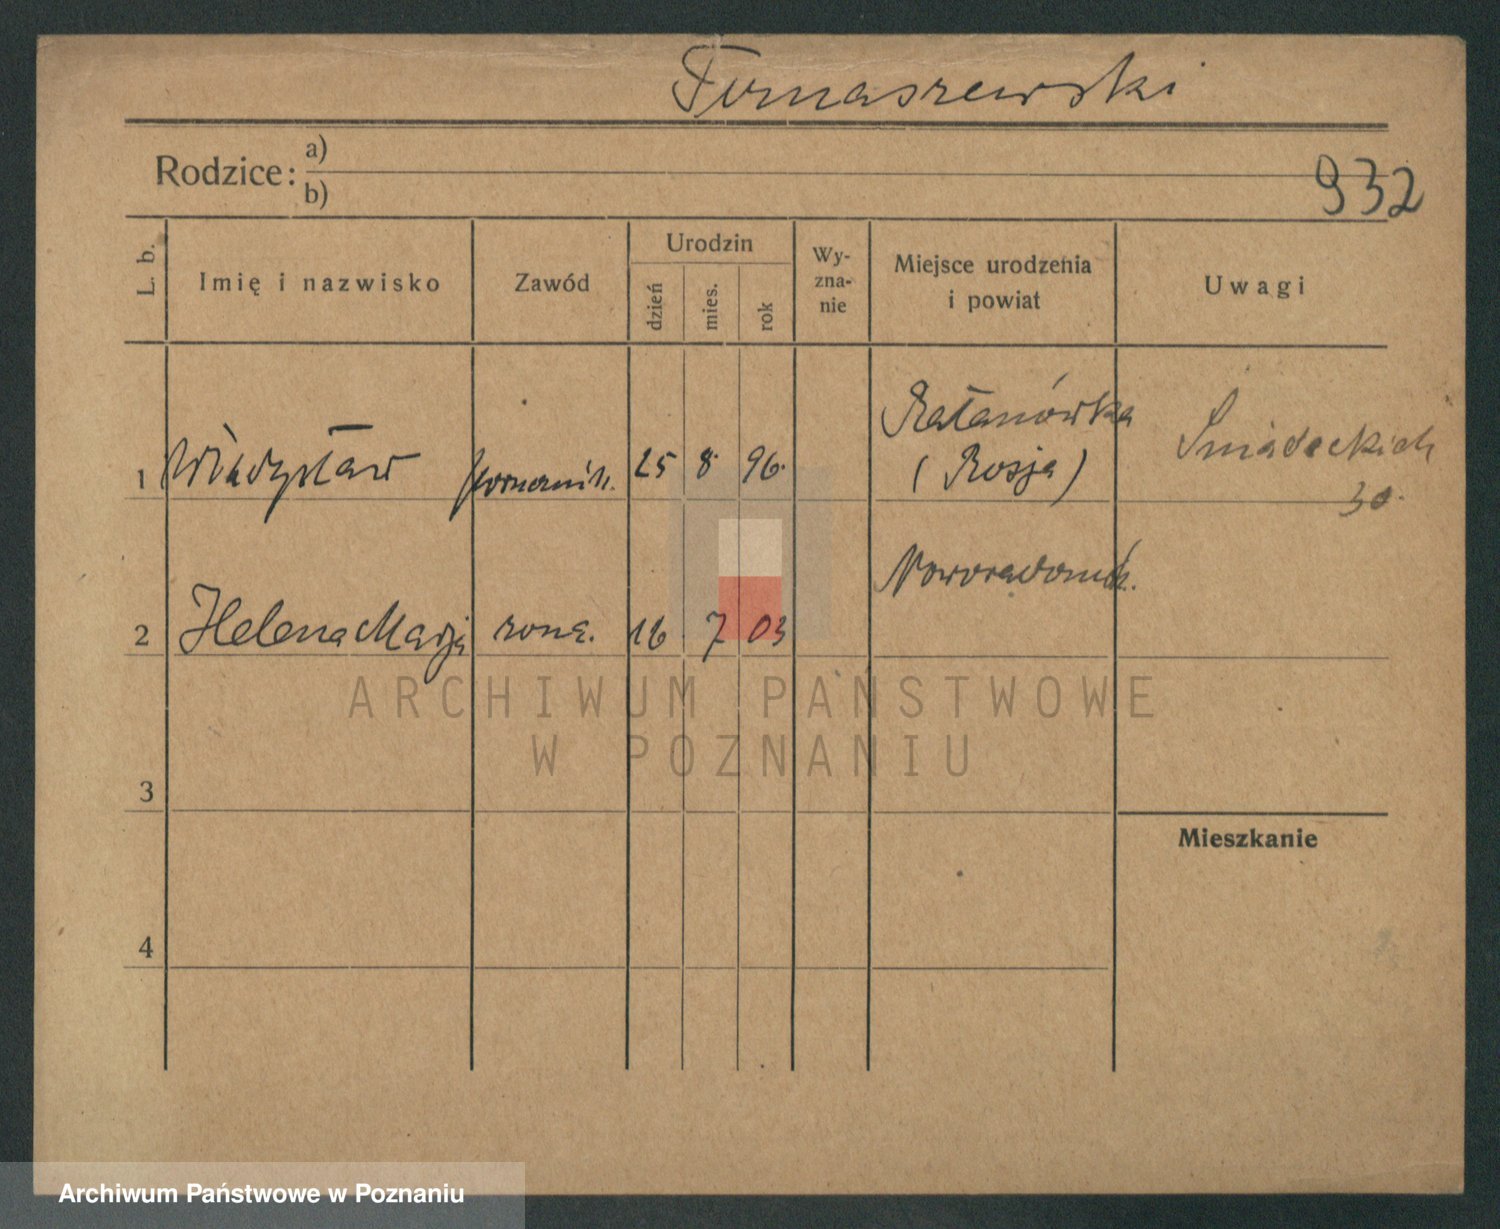 Tomaszewski
Rodzice: a)
b)
932
L. b.
Imię i nazwisko
Zawód
Urodzin
dzień
mies.
rok
Wy-
zna-
nie
Miejsce urodzenia
i powiat
Uwagi
1 Władysław 25 8. 96.
(Rosja)
Śniadeckich
30.
2 Helena Marja żona. 16 7 03
Noworadomsk.
ARCHIWUM PAŃSTWOWE
W POZNANIU
3
Mieszkanie
4
Archiwum Państwowe w Poznaniu